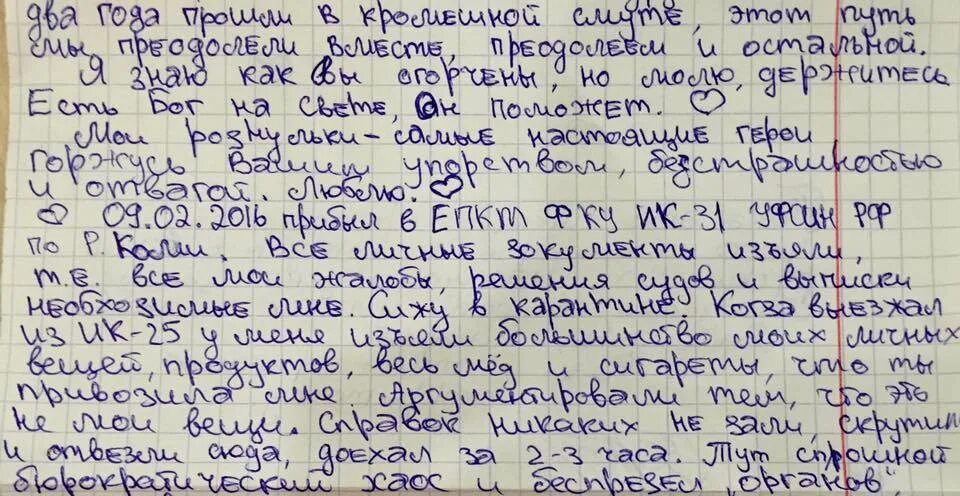 два года прошли в кромешной смуте, этот путь
мы преодолели вместе, преодолеем и остальной.
Я знаю как вы огорчены, но молю, держитесь
Есть Бог на свете, Он поможет. ♡
Мои рознульки - самые настоящие герои
горжусь Вашим упорством, безстрашностью
и отвагой. Люблю. ♡
♡ 09.02.2016 прибыл в ЕПКТ ФКУ ИК-31 УФСИН РФ
по Р. Коми. Все личные зокументы изъяли,
т.е. все мои жалобы, решения судов и выписки
необхозимые мне. Сижу в карантине. Когза выезжал
из ИК-25 у меня изъяли большинство моих личных
вещей, продуктов, весь мёд и сигареты, что ты
привозила мне. Аргументировали тем, что это
не мои вещи. Справок никаких не зали, скрутили
и отвезли сюда, доехал за 2-3 часа. Тут сплошной
бюрократический хаос и беспрезел „органов"